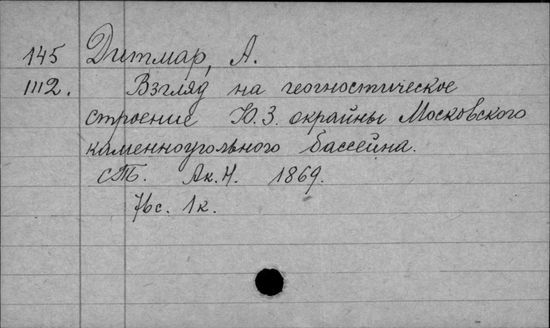 145 Дитмар, А.
1112. Взгляд на геогностическое
строение Ю.З. окрайны Московского
каменноугольного бассейна.
СПб. Ак.Н. 1869.
76с. 1к.